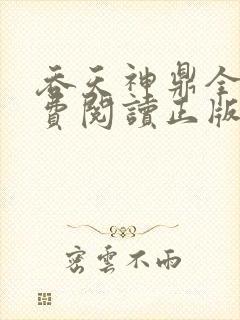 吞天神鼎全
費閱讀正版
密雲不雨